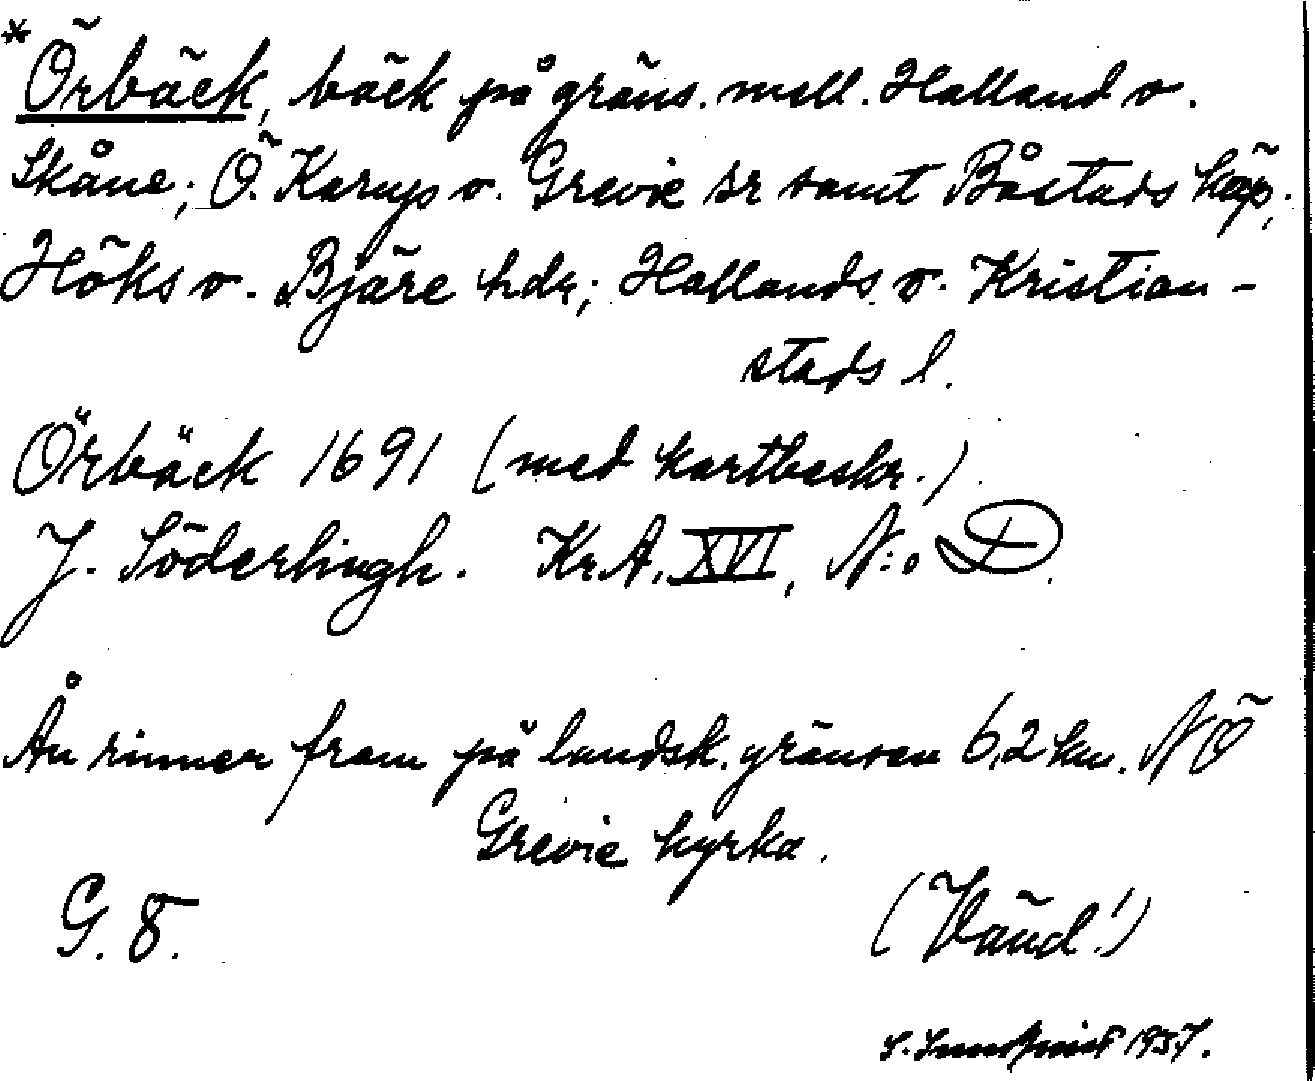 *Örbäck, bäck på gräns. mell. Halland o.
Skåne; Ö. Karups o. Grevie sr samt Båstads köp.
Höks o. Bjäre hdr; Hallands o. Kristian-
stads l.
Örbäck 1691 (med kartbeskr.)
J. Söderlingh. Kr.A. XVI, N:o D.
Ån rinner fram på landsk. gränsen 6,2 km. NÖ
Grevie kyrka.
G. 8.
(Vänd!)
S. Lundqvist 1937.